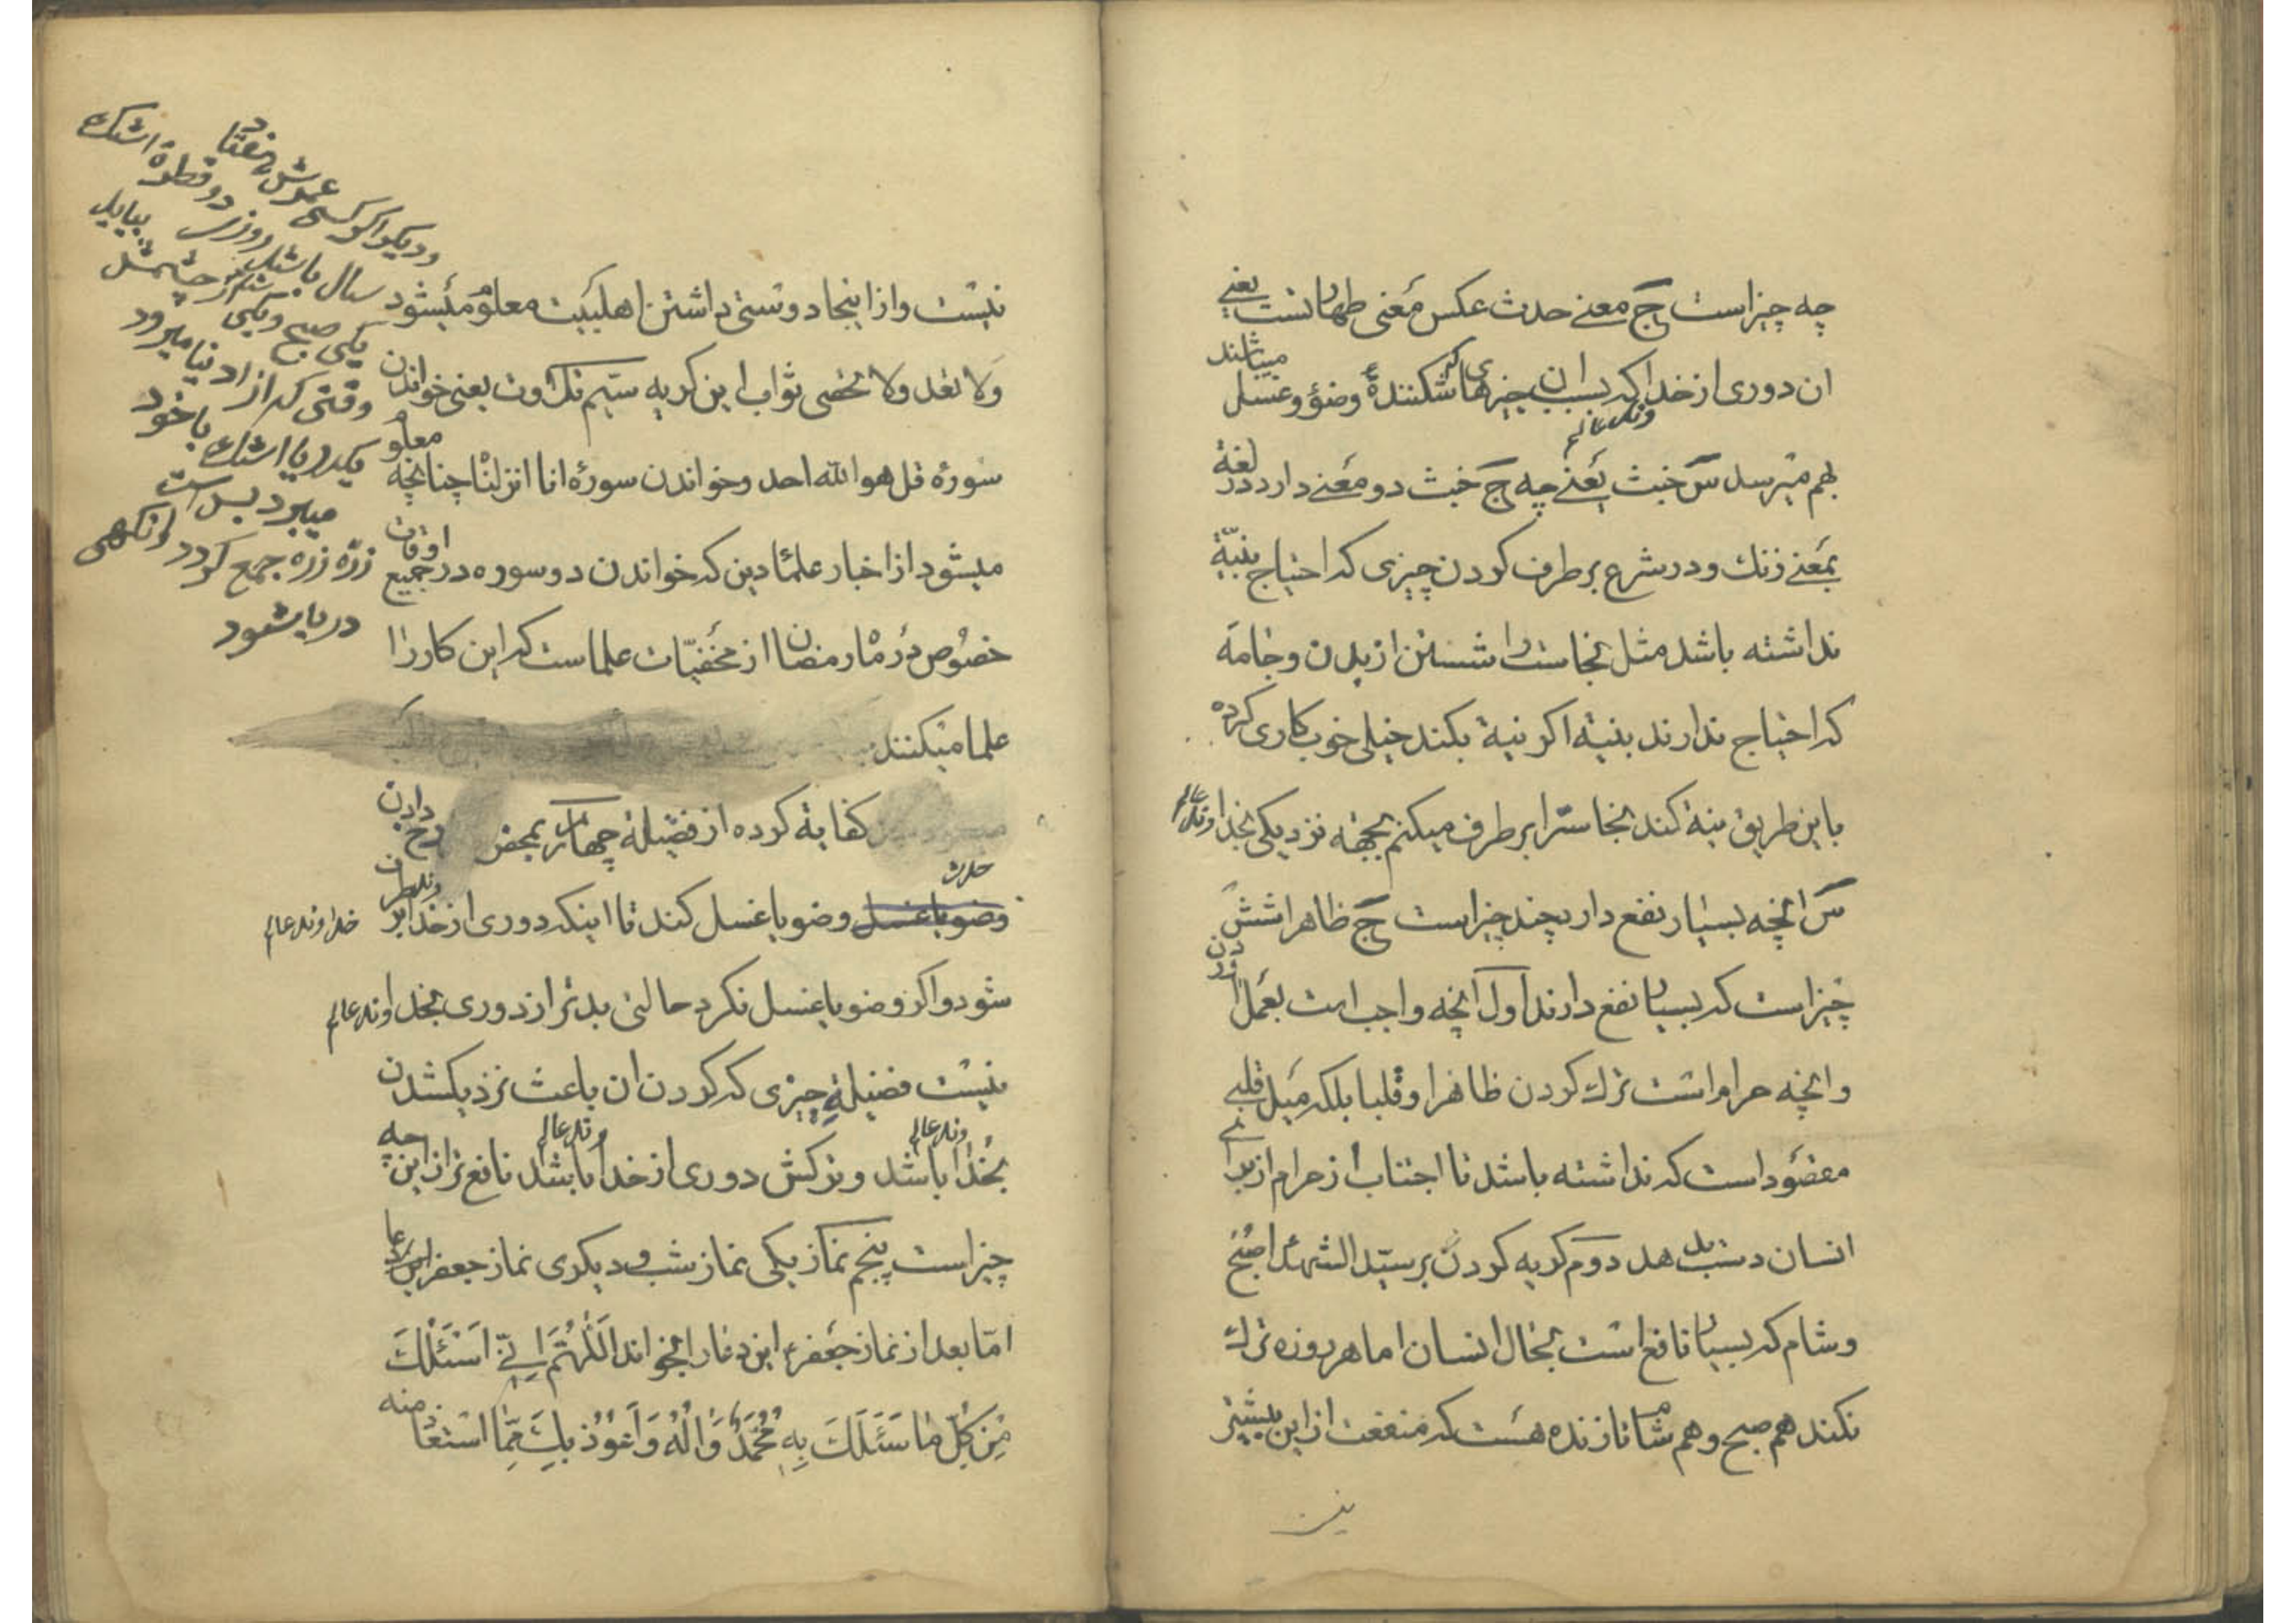 چه چیز است ج معنی حدث عکس معنی طهارتست یعنی
ان دوری از خداوند عالم که بسبب ان چیزهای که شکننده وضؤ و غسل میباشند
بهم میرسد س خبث یعنی چه ج خبث دو معنی دارد در لغة
بمعنی زنك و در شرع بر طرف کردن چیزی که احتیاج بنیّة
نداشته باشد مثل نجاست را شستن از بدن و جامه
که احتیاج ندارند بنیة اکر نیة بکند خیلی خوب کاری کرده
باین طریق نیة کند نجاسترا بر طرف میکنم بجهة نزدیکی بخداوند عالم
س انچه بسیار نفع دارد چند چیز است ج ظاهرا شش
چیز است که بسیار نفع دارند اول انچه واجب است بعمل اوردن
و انچه حرام است ترك کردن ظاهرا و قلبا بلکه میل قلبی
مقصود است که نداشته باشد تا اجتناب از حرام از برای
انسان دست بدهد دوم کریه کردن بر سیّد الشهدا صبح
و شام که بسیار نافع است بحال انسان اما هر روزه ترك
نکند هم صبح و هم شام تا زنده هست که منفعت از این بیشتر
نیست و از اینجا دوستی داشتن اهلبیت معلوم میشود
ولا تعد ولا تحصی ثواب این کریه سیّم تلاوت یعنی خواندن
سورهٔ قل هو الله احد و خواندن سورهٔ انا انزلنا چنانچه معلوم
میشود از اخبار علما دین که خواندن دو سوره در جمیع اوقات
خصوص در ماه رمضان از مخفیّات علماست که این کار را
علما میکنند
کفایة کرده از فضیلة چهارم بمجض رخ دادن
حدث وضو یا غسل وضو یا غسل کند تا اینکه دوری از خداوند عالم بر طرف
شود و اکر وضو یا غسل نکرد حالتی بدتر از دوری بخداوند عالم
نیست فضیلة چیزی که کردن ان باعث نزدیکشدن
بخداوند عالم باشد و ترکش دوری از خداوند عالم باشد نافع تر از این چه
چیز است پنجم نماز یکی نماز شب و دیکری نماز جعفر
امّا بعد از نماز جعفر این دعا را بخواند اَللّٰهُمَّ اِنّی اَسْئَلُكَ
مِنْ کُلِّ مٰا سَئَلَكَ بِهِ مُحَمَّدٌ وَ اٰلُهُ وَ اَعُوُذُ بِكَ مِمَّا اسْتَعٰاذ منه
و دیکر اکر کسی عمرش هفتاد
سال باشد روزی دو قطرهٔ اشك
یکی صبح و یکی شام از چشمش بیاید
وقتی که از دنیا میرود
یکدریا اشك با خود
میبرد بس است
زرّه زره جمع کردد وانکهی
دریا شود